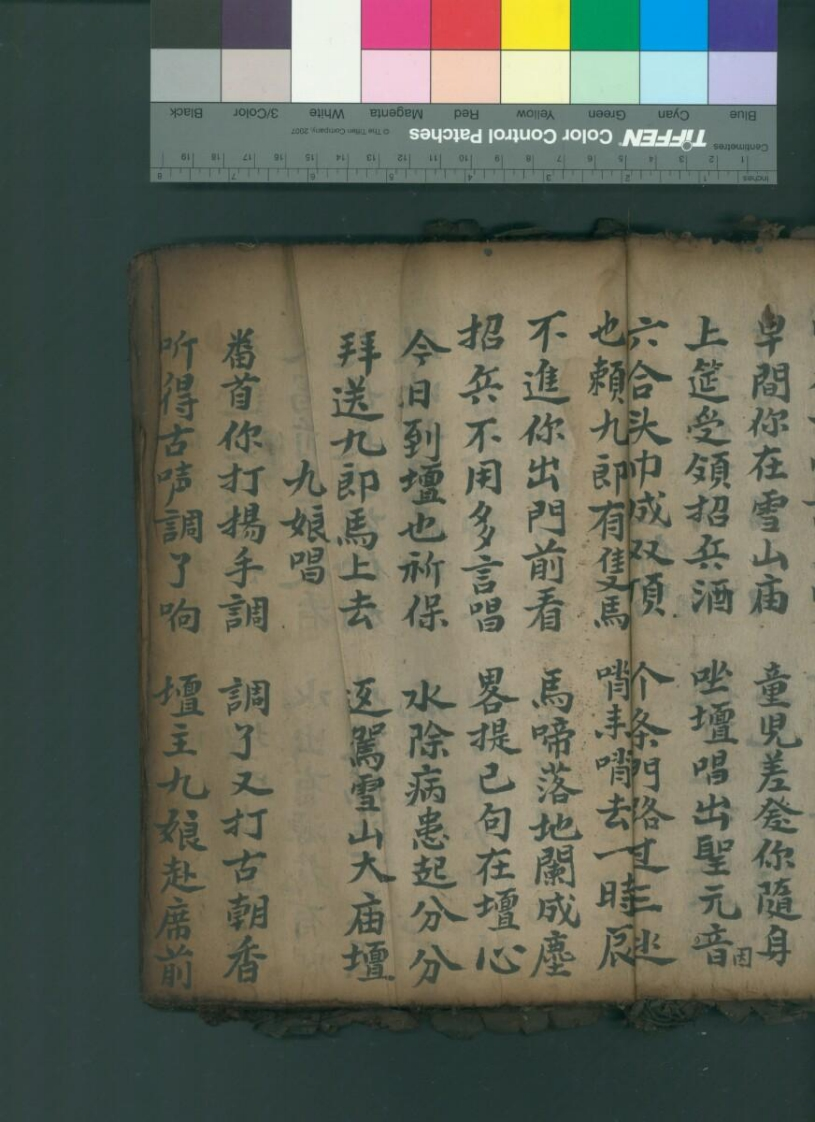 早間你在雪山庙 童児差發你隨身
上筵受領招兵酒 唑壇唱出聖元音
因
六合头巾成双項 个条門路过三
也賴九郎有隻馬 哨来哨去一時辰
不進你出門前看 馬啼落地闌成塵
招兵不用多言唱 畧提已句在壇心
今日到壇也祈保 水除病患起分分
拜送九郎馬上去 返駕雪山大庙壇
九娘唱
畨首你打揚手調 調了又打古朝香
听得古唷調了响 壇主九娘赴席前
Blue Cyan Green Yellow Red Magenta White 3/Color Black
TIFFEN Color Control Patches © The Tiffen Company, 2007
Centimetres
1 2 3 4 5 6 7 8 9 10 11 12 13 14 15 16 17 18 19
Inches
1 2 3 4 5 6 7 8